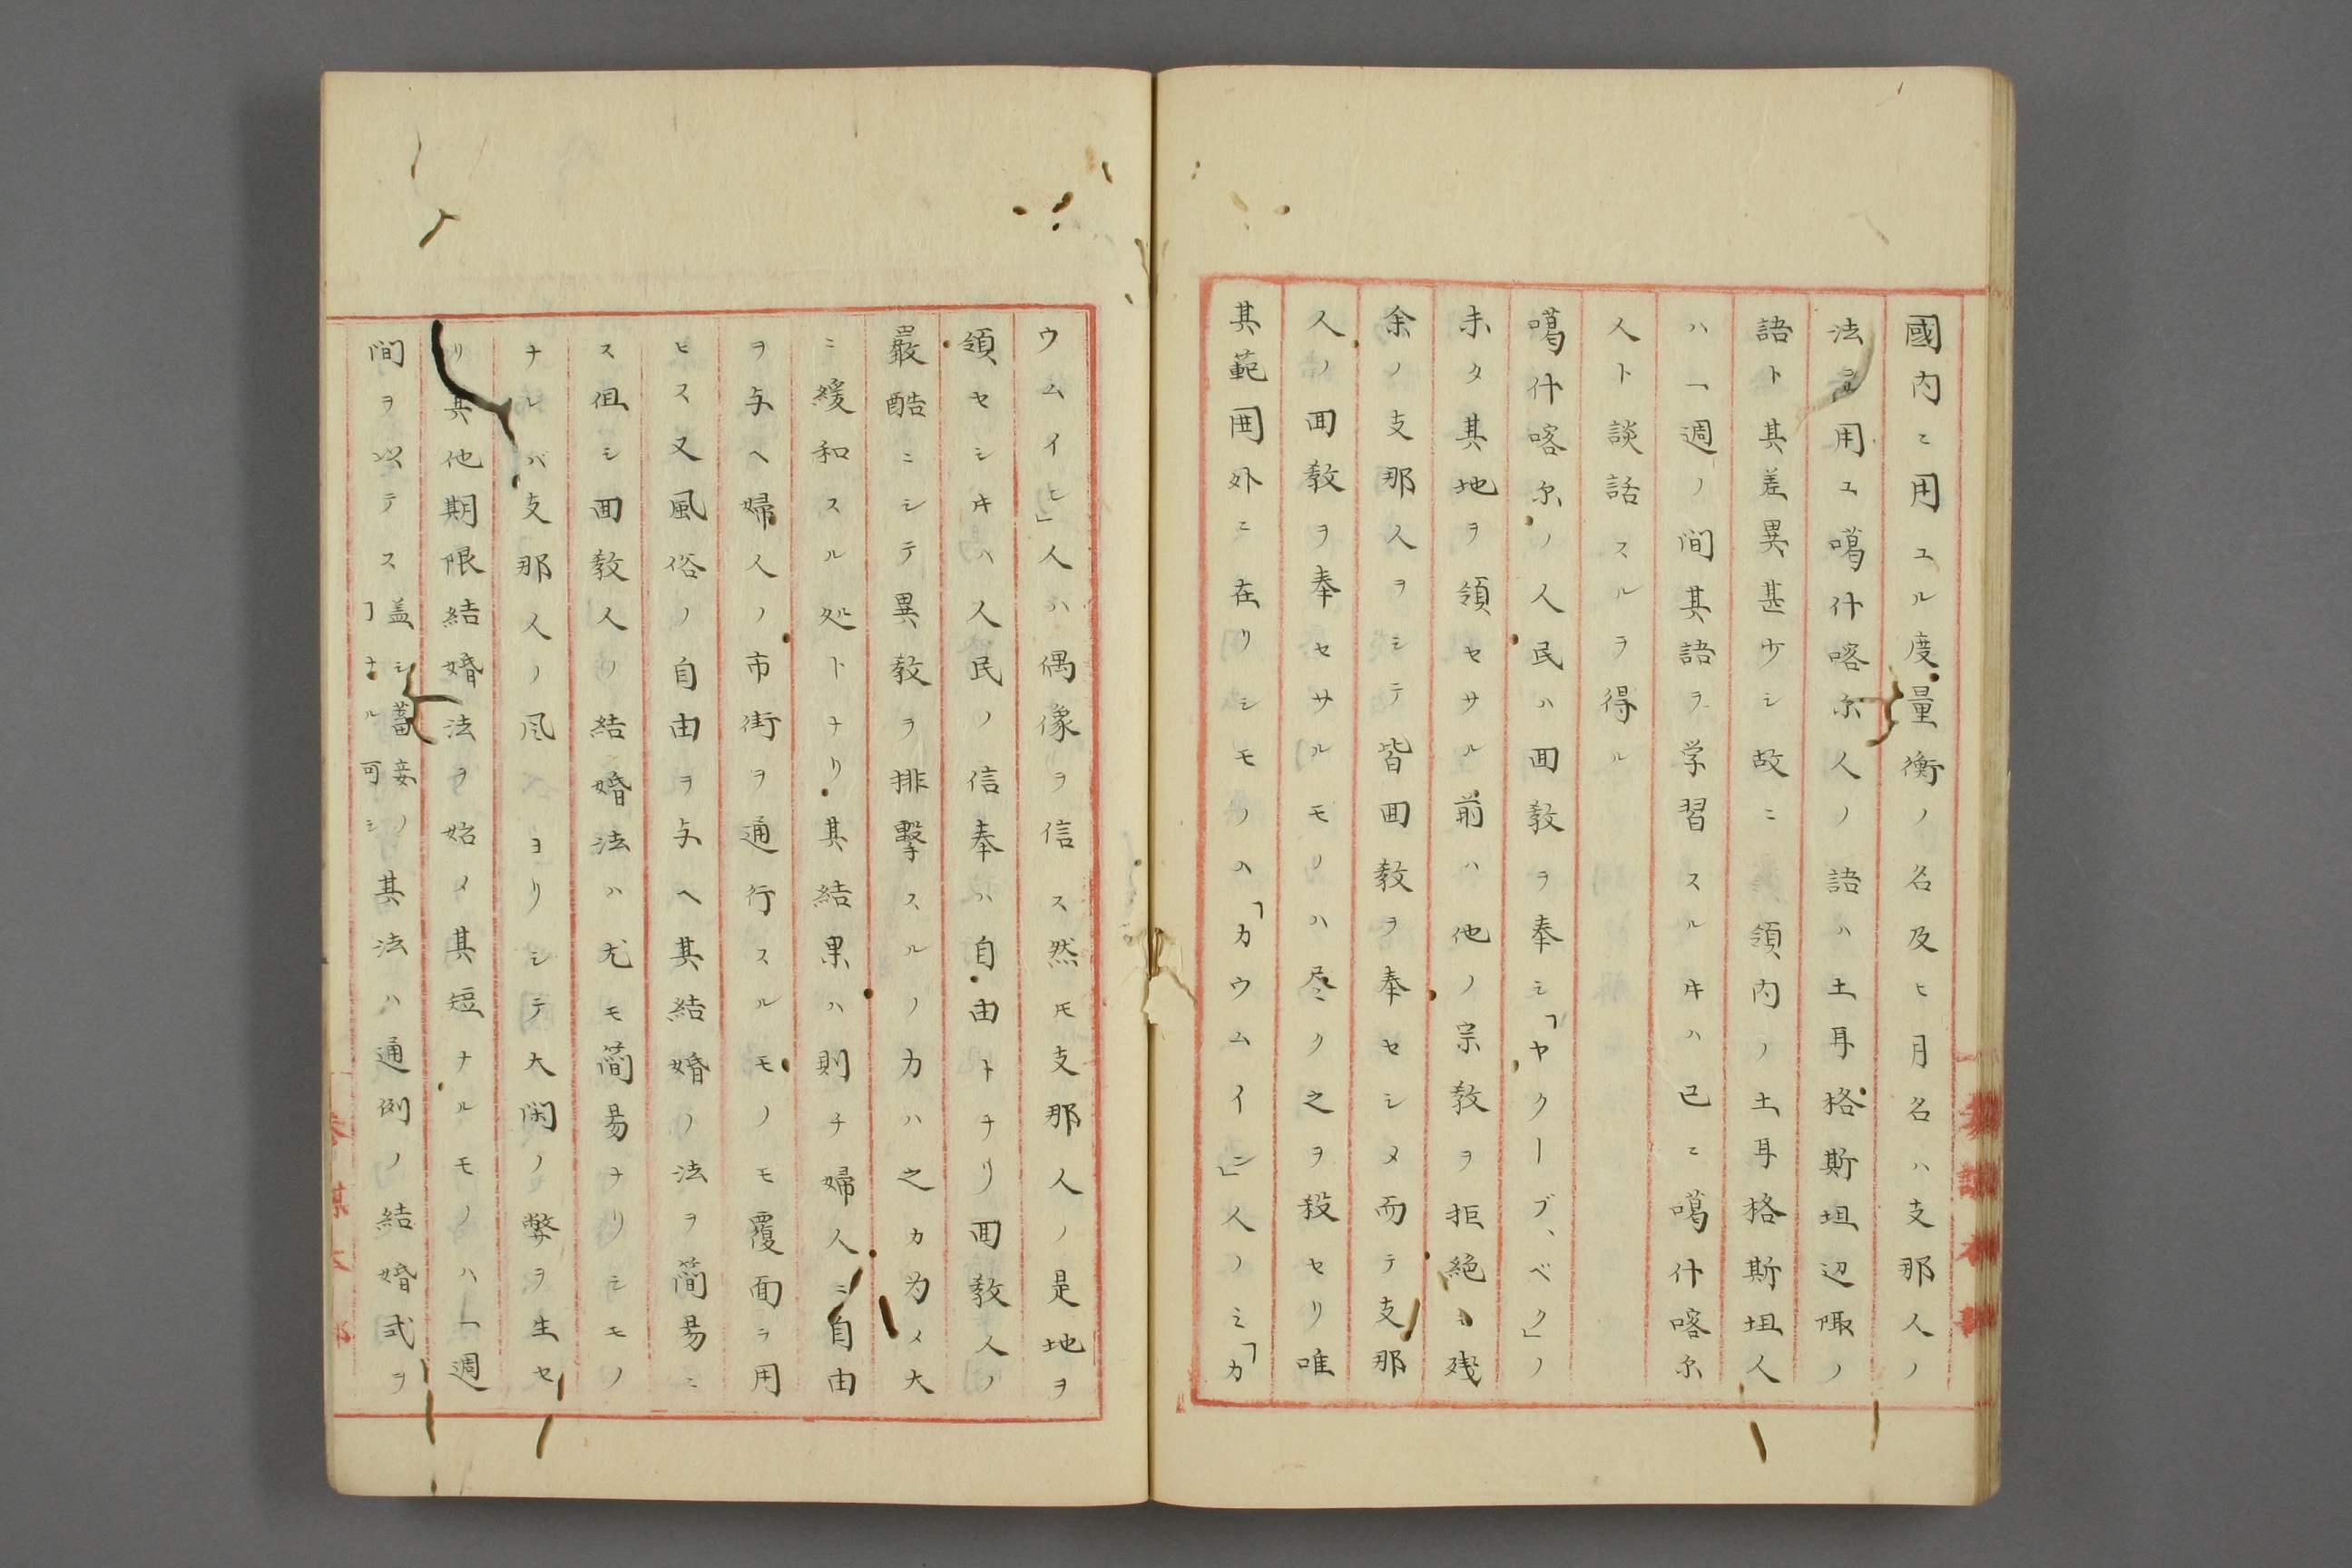 國内ニ用ユル度量衡ノ名及ヒ月名ハ支那人ノ
法ヲ用ユ噶什喀尓人ノ語ハ土耳格斯坦辺陬ノ
語ト其差異甚少シ故ニ領内ノ土耳格斯坦人
ハ一週ノ間其語ヲ学習スルキハ已ニ噶什喀尓
人ト談話スルヲ得ル
噶什喀尓ノ人民ハ囬教ヲ奉シ「ヤクーブ、ベク」ノ
未タ其地ヲ領セサル前ハ他ノ宗教ヲ拒絶シ残
余ノ支那人ヲシテ皆囬教ヲ奉セシメ而テ支那
人ノ囬教ヲ奉セサルモノハ尽ク之ヲ殺セリ唯
其範囲外ニ在リシモノハ「カウムイニ」人ノミ「カ
ウムイヒ」人ハ偶像ヲ信ス然モ支那人ノ是地ヲ
領セシキハ人民ノ信奉ハ自由トナリ囬教人ノ
嚴酷ニシテ異教ヲ排撃スルノ力ハ之カ为メ大
ニ緩和スル処トナリ其結果ハ則チ婦人ニ自由
ヲ与ヘ婦人ノ市街ヲ通行スルモノモ覆面ヲ用
ヒス又風俗ノ自由ヲ与ヘ其結婚ノ法ヲ簡易ニ
ス但シ囬教人ノ結婚法ハ尤モ簡易ナリシモノ
ナレバ支那人ノ風ヨリシテ大閑ノ弊ヲ生セ
リ其他期限結婚法ヲ始メ其短ナルモノハ一週
間ヲ以テス盖シ蓄妾ノヿナル可シ其法ハ通例ノ結婚式ヲ